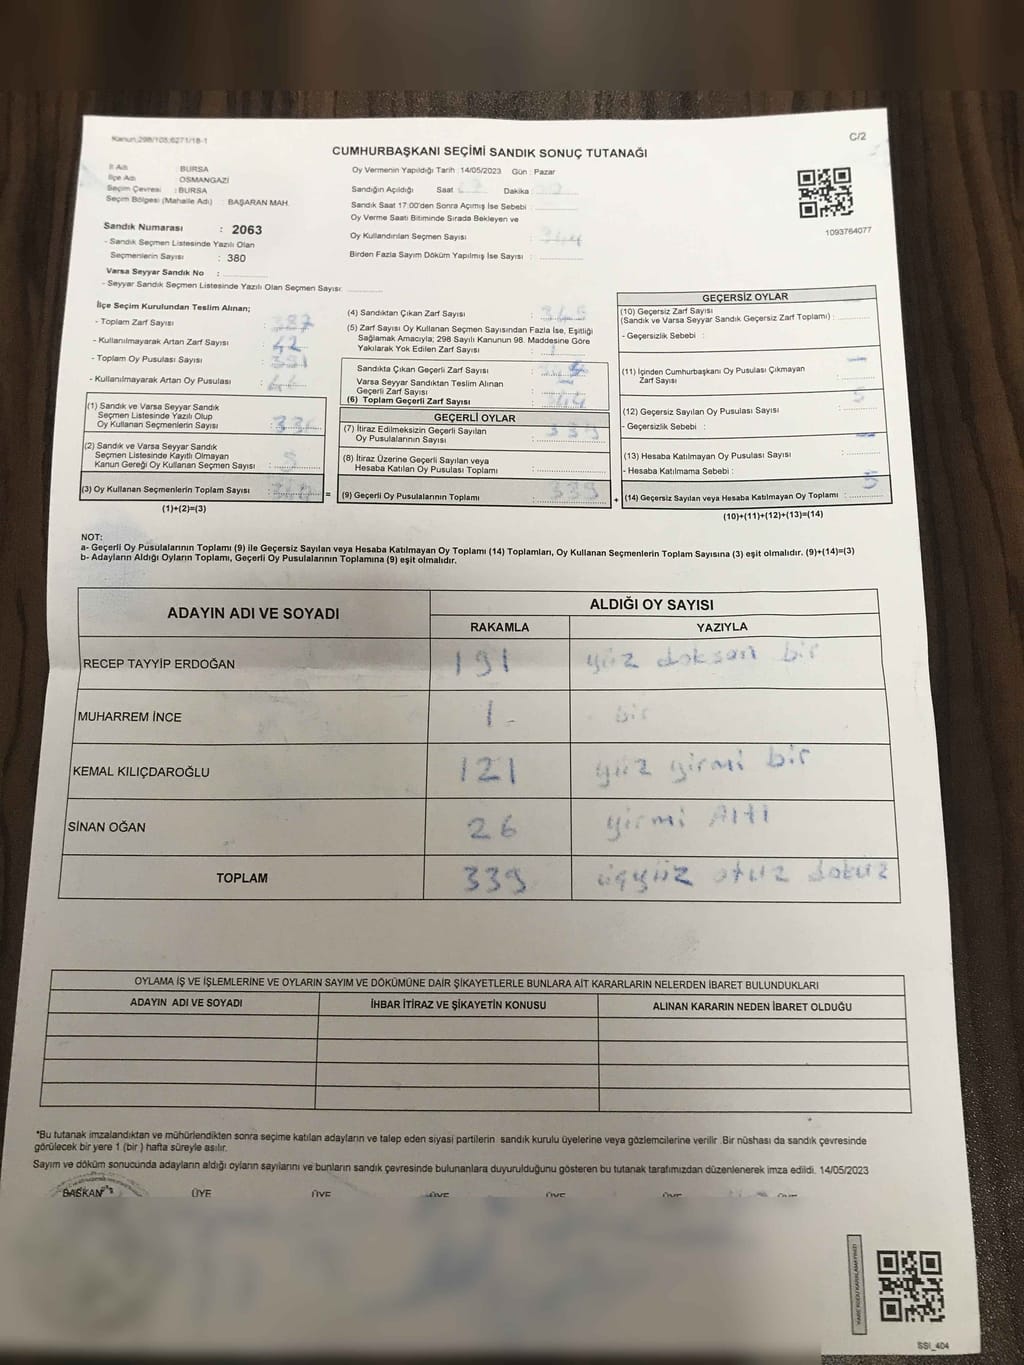 Kanun:298/105;6271/18-1
C/2
CUMHURBAŞKANI SEÇİMİ SANDIK SONUÇ TUTANAĞI
İl Adı BURSA
İlçe Adı OSMANGAZİ
Seçim Çevresi : BURSA
Seçim Bölgesi (Mahalle Adı) : BAŞARAN MAH.
Oy Vermenin Yapıldığı Tarih : 14/05/2023 Gün : Pazar
Sandığın Açıldığı Saat Dakika
Sandık Saat 17:00'den Sonra Açımış İse Sebebi :
Oy Verme Saati Bitiminde Sırada Bekleyen ve
Oy Kullandırılan Seçmen Sayısı : 344
Birden Fazla Sayım Döküm Yapılmış İse Sayısı :
1093764077
Sandık Numarası : 2063
- Sandık Seçmen Listesinde Yazılı Olan
Seçmenlerin Sayısı : 380
Varsa Seyyar Sandık No :
- Seyyar Sandık Seçmen Listesinde Yazılı Olan Seçmen Sayısı:
İlçe Seçim Kurulundan Teslim Alınan;
- Toplam Zarf Sayısı : 387
- Kullanılmayarak Artan Zarf Sayısı : 42
- Toplam Oy Pusulası Sayısı : 391
- Kullanılmayarak Artan Oy Pusulası :
(1) Sandık ve Varsa Seyyar Sandık
Seçmen Listesinde Yazılı Olup
Oy Kullanan Seçmenlerin Sayısı :
(2) Sandık ve Varsa Seyyar Sandık
Seçmen Listesinde Kayıtlı Olmayan
Kanun Gereği Oy Kullanan Seçmen Sayısı :
(3) Oy Kullanan Seçmenlerin Toplam Sayısı :
(1)+(2)=(3)
=
(4) Sandıktan Çıkan Zarf Sayısı : 345
(5) Zarf Sayısı Oy Kullanan Seçmen Sayısından Fazla İse, Eşitliği
Sağlamak Amacıyla; 298 Sayılı Kanunun 98. Maddesine Göre
Yakılarak Yok Edilen Zarf Sayısı : 1
Sandıkta Çıkan Geçerli Zarf Sayısı :
Varsa Seyyar Sandıktan Teslim Alınan
Geçerli Zarf Sayısı : –
(6) Toplam Geçerli Zarf Sayısı : 344
GEÇERLİ OYLAR
(7) İtiraz Edilmeksizin Geçerli Sayılan
Oy Pusulalarının Sayısı : 339
(8) İtiraz Üzerine Geçerli Sayılan veya
Hesaba Katılan Oy Pusulası Toplamı :
(9) Geçerli Oy Pusulalarının Toplamı : 339
+
GEÇERSİZ OYLAR
(10) Geçersiz Zarf Sayısı
(Sandık ve Varsa Seyyar Sandık Geçersiz Zarf Toplamı) :
- Geçersizlik Sebebi :
(11) İçinden Cumhurbaşkanı Oy Pusulası Çıkmayan
Zarf Sayısı : –
(12) Geçersiz Sayılan Oy Pusulası Sayısı : 5
- Geçersizlik Sebebi :
(13) Hesaba Katılmayan Oy Pusulası Sayısı : –
- Hesaba Katılmama Sebebi :
(14) Geçersiz Sayılan veya Hesaba Katılmayan Oy Toplamı : 5
(10)+(11)+(12)+(13)=(14)
NOT:
a- Geçerli Oy Pusulalarının Toplamı (9) ile Geçersiz Sayılan veya Hesaba Katılmayan Oy Toplamı (14) Toplamları, Oy Kullanan Seçmenlerin Toplam Sayısına (3) eşit olmalıdır. (9)+(14)=(3)
b- Adayların Aldığı Oyların Toplamı, Geçerli Oy Pusulalarının Toplamına (9) eşit olmalıdır.
ADAYIN ADI VE SOYADI ALDIĞI OY SAYISI
RAKAMLA YAZIYLA
RECEP TAYYİP ERDOĞAN 191 yüz doksan bir
MUHARREM İNCE 1 - bir
KEMAL KILIÇDAROĞLU 121 yüz yirmi bir
SİNAN OĞAN 26 yirmi Altı
TOPLAM 339 üçyüz otuz dokuz
OYLAMA İŞ VE İŞLEMLERİNE VE OYLARIN SAYIM VE DÖKÜMÜNE DAİR ŞİKAYETLERLE BUNLARA AİT KARARLARIN NELERDEN İBARET BULUNDUKLARI
ADAYIN ADI VE SOYADI İHBAR İTİRAZ VE ŞİKAYETİN KONUSU ALINAN KARARIN NEDEN İBARET OLDUĞU
*Bu tutanak imzalandıktan ve mühürlendikten sonra seçime katılan adayların ve talep eden siyasi partilerin sandık kurulu üyelerine veya gözlemcilerine verilir. Bir nüshası da sandık çevresinde
görülecek bir yere 1 (bir) hafta süreyle asılır.
Sayım ve döküm sonucunda adayların aldığı oyların sayılarını ve bunların sandık çevresinde bulunanlara duyurulduğunu gösteren bu tutanak tarafımızdan düzenlenerek imza edildi. 14/05/2023
BAŞKAN ÜYE ÜYE ÜYE ÜYE ÜYE ÜYE
SSİ_404